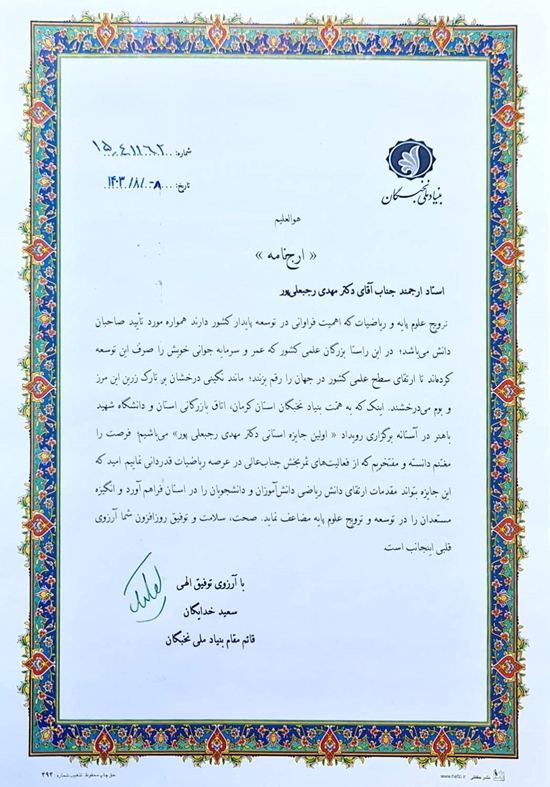 شماره: ۱۵/۰۴/۱۱۶۲
تاریخ: ۱۴۰۳/۸/۰۸
بنیاد ملی نخبگان
هوالعلیم
« ارج‌نامه »
استاد ارجمند جناب آقای دکتر مهدی رجبعلی‌پور
ترویج علوم پایه و ریاضیات که اهمیت فراوانی در توسعه پایدار کشور دارند همواره مورد تأیید صاحبان
دانش می‌باشد؛ در این راستا بزرگان علمی کشور که عمر و سرمایه جوانی خویش را صرف این توسعه
کرده‌اند تا ارتقای سطح علمی کشور در جهان را رقم بزنند؛ مانند نگینی درخشان بر تارک زرین این مرز
و بوم می‌درخشند. اینک که به همّت بنیاد نخبگان استان کرمان، اتاق بازرگانی استان و دانشگاه شهید
باهنر در آستانه برگزاری رویداد « اولین جایزه استانی دکتر مهدی رجبعلی پور» می‌باشیم؛ فرصت را
مغتنم دانسته و مفتخریم که از فعالیت‌های ثمربخش جناب‌عالی در عرصه ریاضیات قدردانی نماییم. امید که
این جایزه بتواند مقدمات ارتقای دانش ریاضی دانش‌آموزان و دانشجویان را در استان فراهم آورد و انگیزه
مستعدان را در توسعه و ترویج علوم پایه مضاعف نماید. صحت، سلامت و توفیق روزافزون شما آرزوی
قلبی اینجانب است.
با آرزوی توفیق الهی
سعید خدایگان
قائم مقام بنیاد ملی نخبگان
نشر حافظی www.hafiz.ir
حق چاپ محفوظ تذهیب شماره ۲۹۲